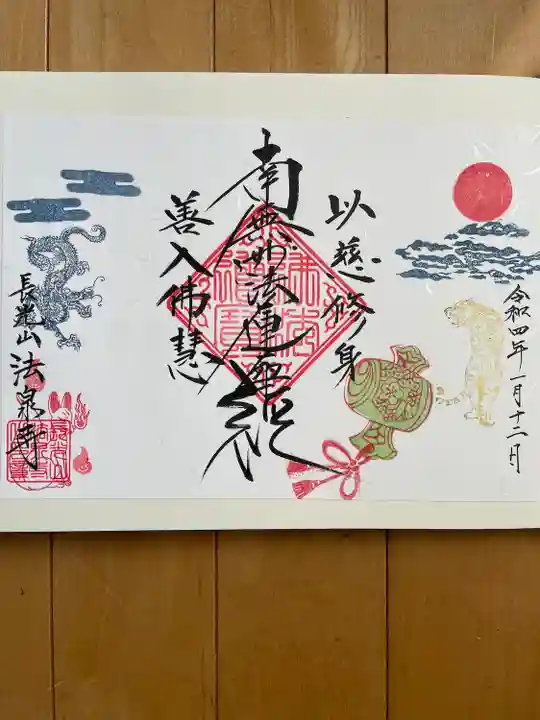 令和四年一月十二日
以慈修身
南無妙法蓮華経
善入佛慧
長光山 法泉寺